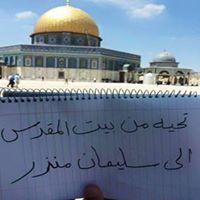 تحيه من بيت المقدس
الى سليمان منذر